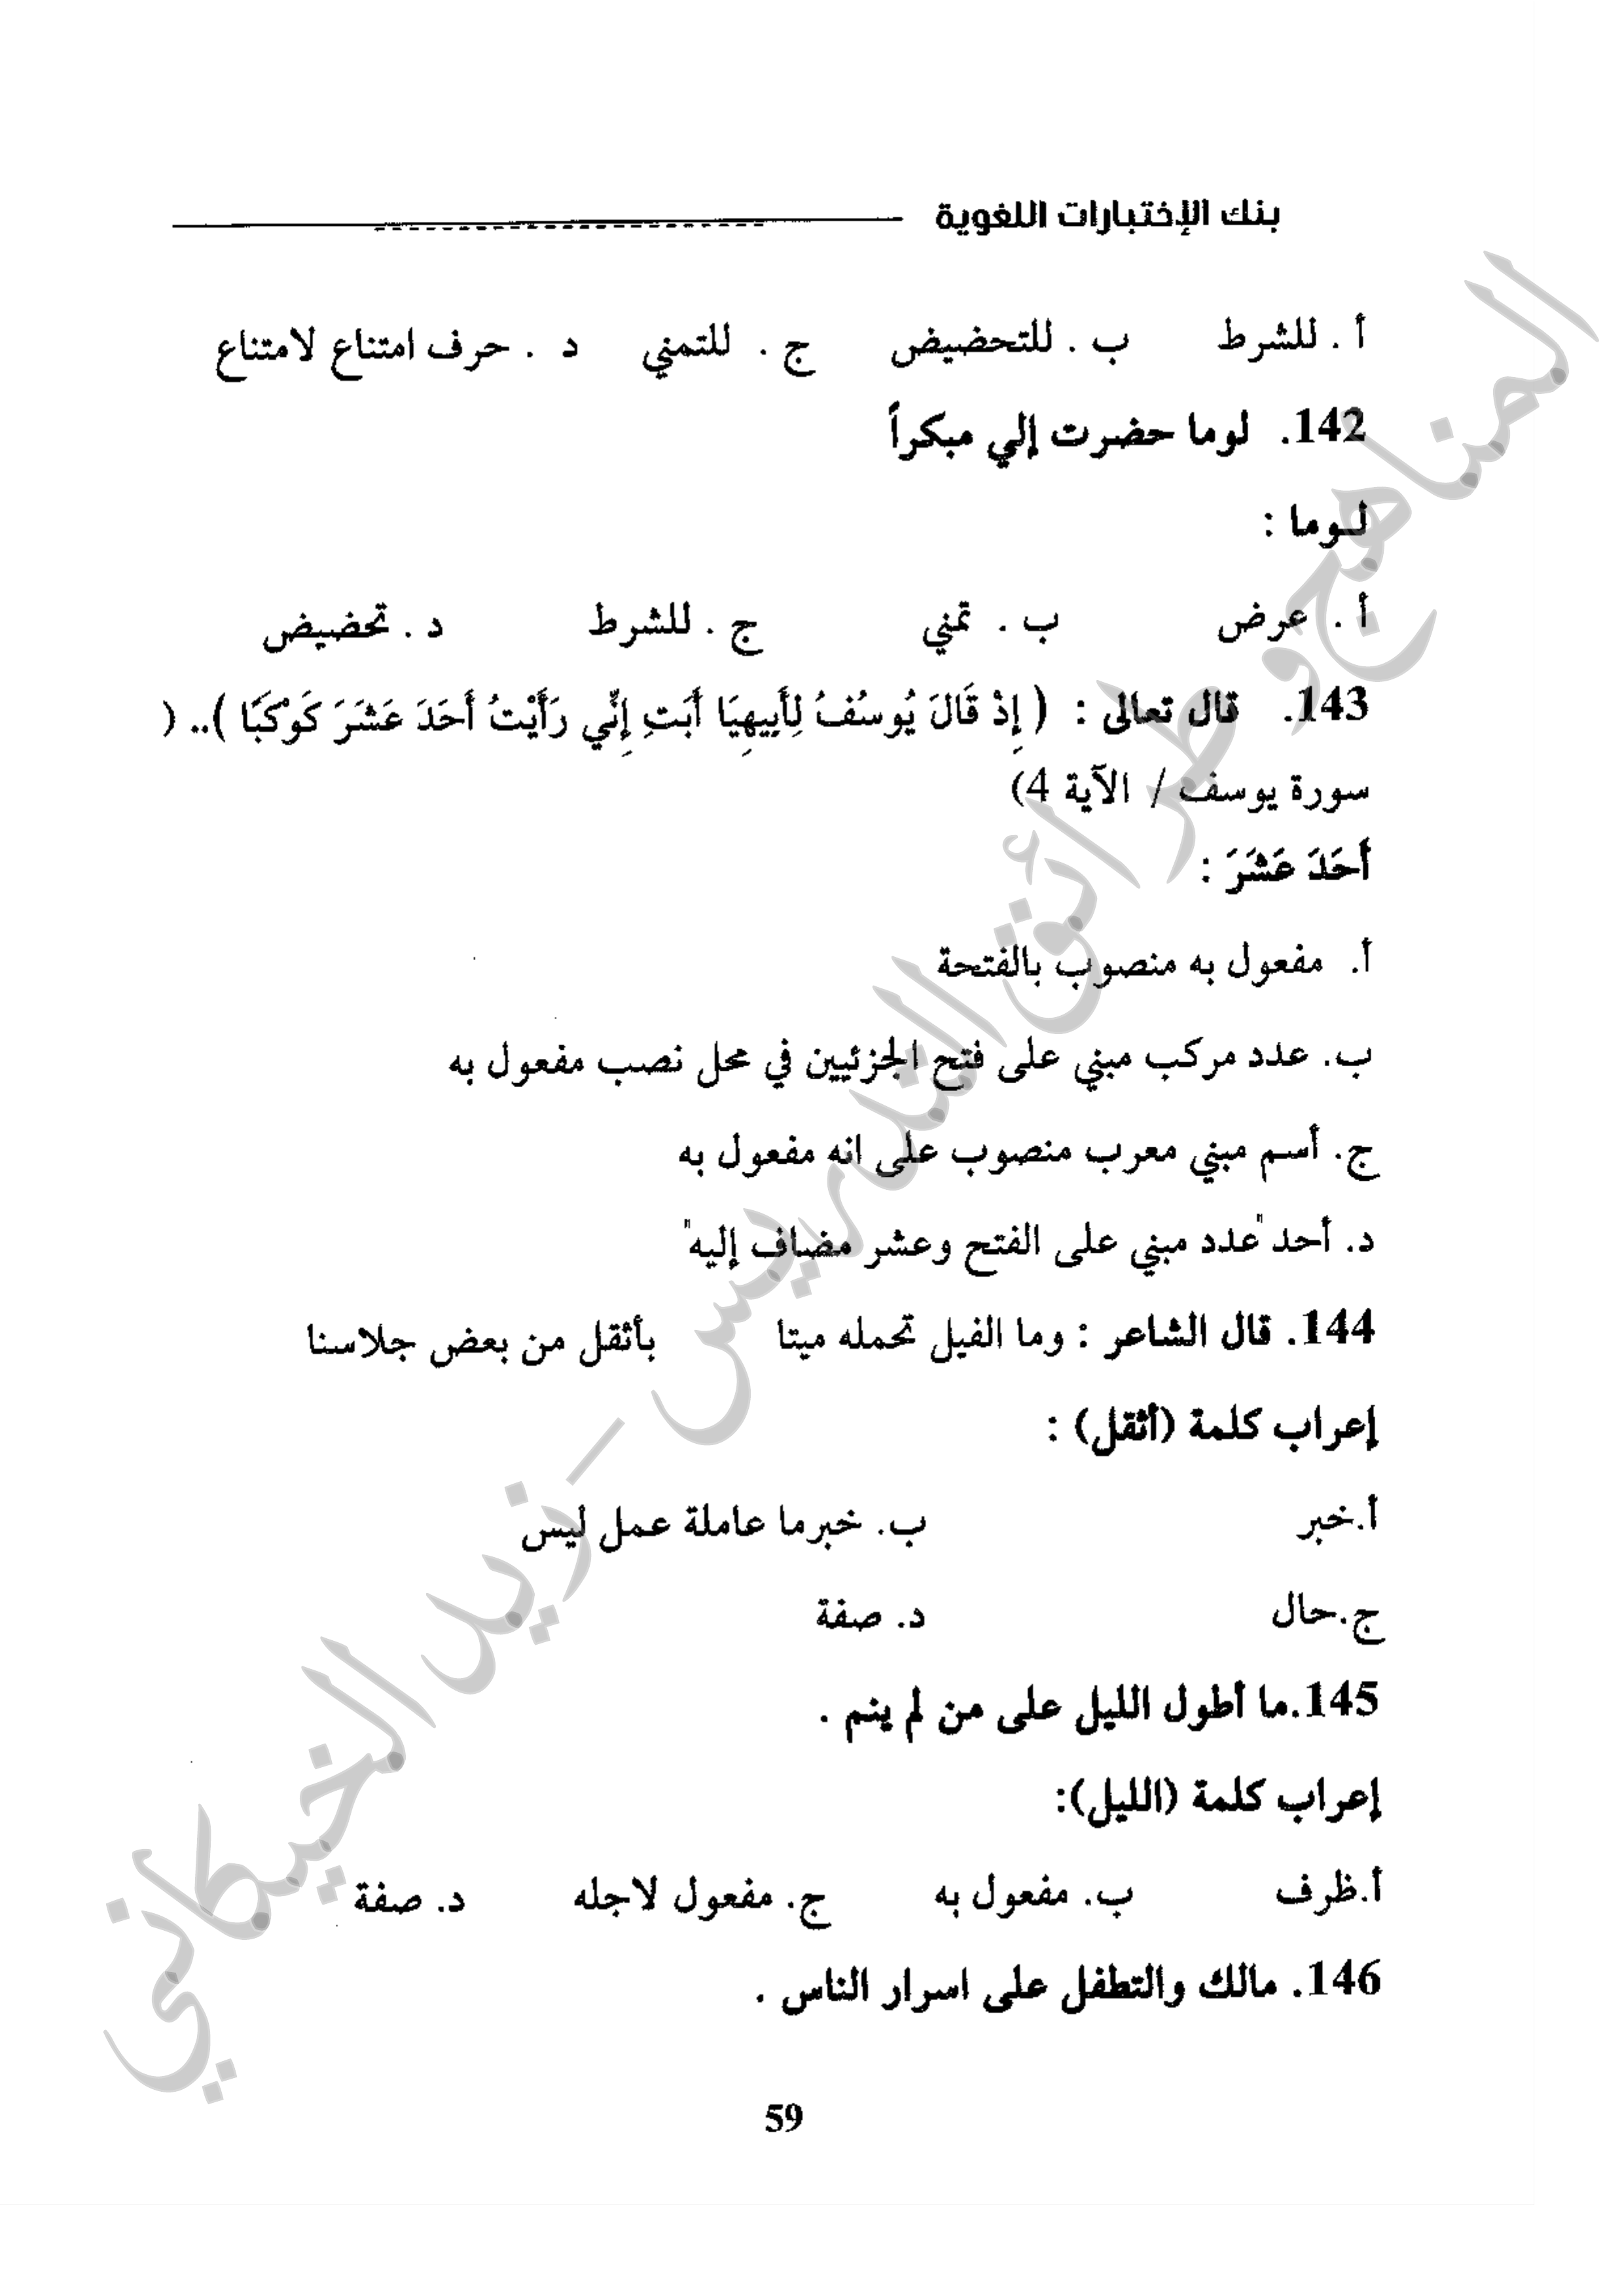 بنك الإختبارات اللغوية
أ . للشرط ب . للتحضيض ج . للتمني د . حرف امتناع لامتناع
142. لوما حضرت إلي مبكراً
لـوما :
أ . عرض ب . تمني ج . للشرط د . تحضيض
143. قال تعالى : ( إِذْ قَالَ يُوسُفُ لِأَبِيهِيَا أَبَتِ إِنِّي رَأَيْتُ أَحَدَ عَشَرَ كَوْكَبًا ).. (
سورة يوسف / الآية 4)
أَحَدَ عَشَرَ :
أ. مفعول به منصوب بالفتحة
ب. عدد مركب مبني على فتح الجزئيين في محل نصب مفعول به
ج. أسم مبني معرب منصوب على انه مفعول به
د. أحد "عدد مبني على الفتح وعشر مضاف إليه"
144. قال الشاعر : وما الفيل تحمله ميتا بأثقل من بعض جلاسنا
إعراب كلمة (أثقل) :
أ.خبر ب. خبرما عاملة عمل ليس
ج.حال د. صفة
145.ما أطول الليل على من لم ينم .
إعراب كلمة (الليل):
أ.ظرف ب. مفعول به ج. مفعول لاجله د. صفة
146. مالك والتطفل على اسرار الناس .
59
المناهج وطرائق التدريس - زيد الخيكاني